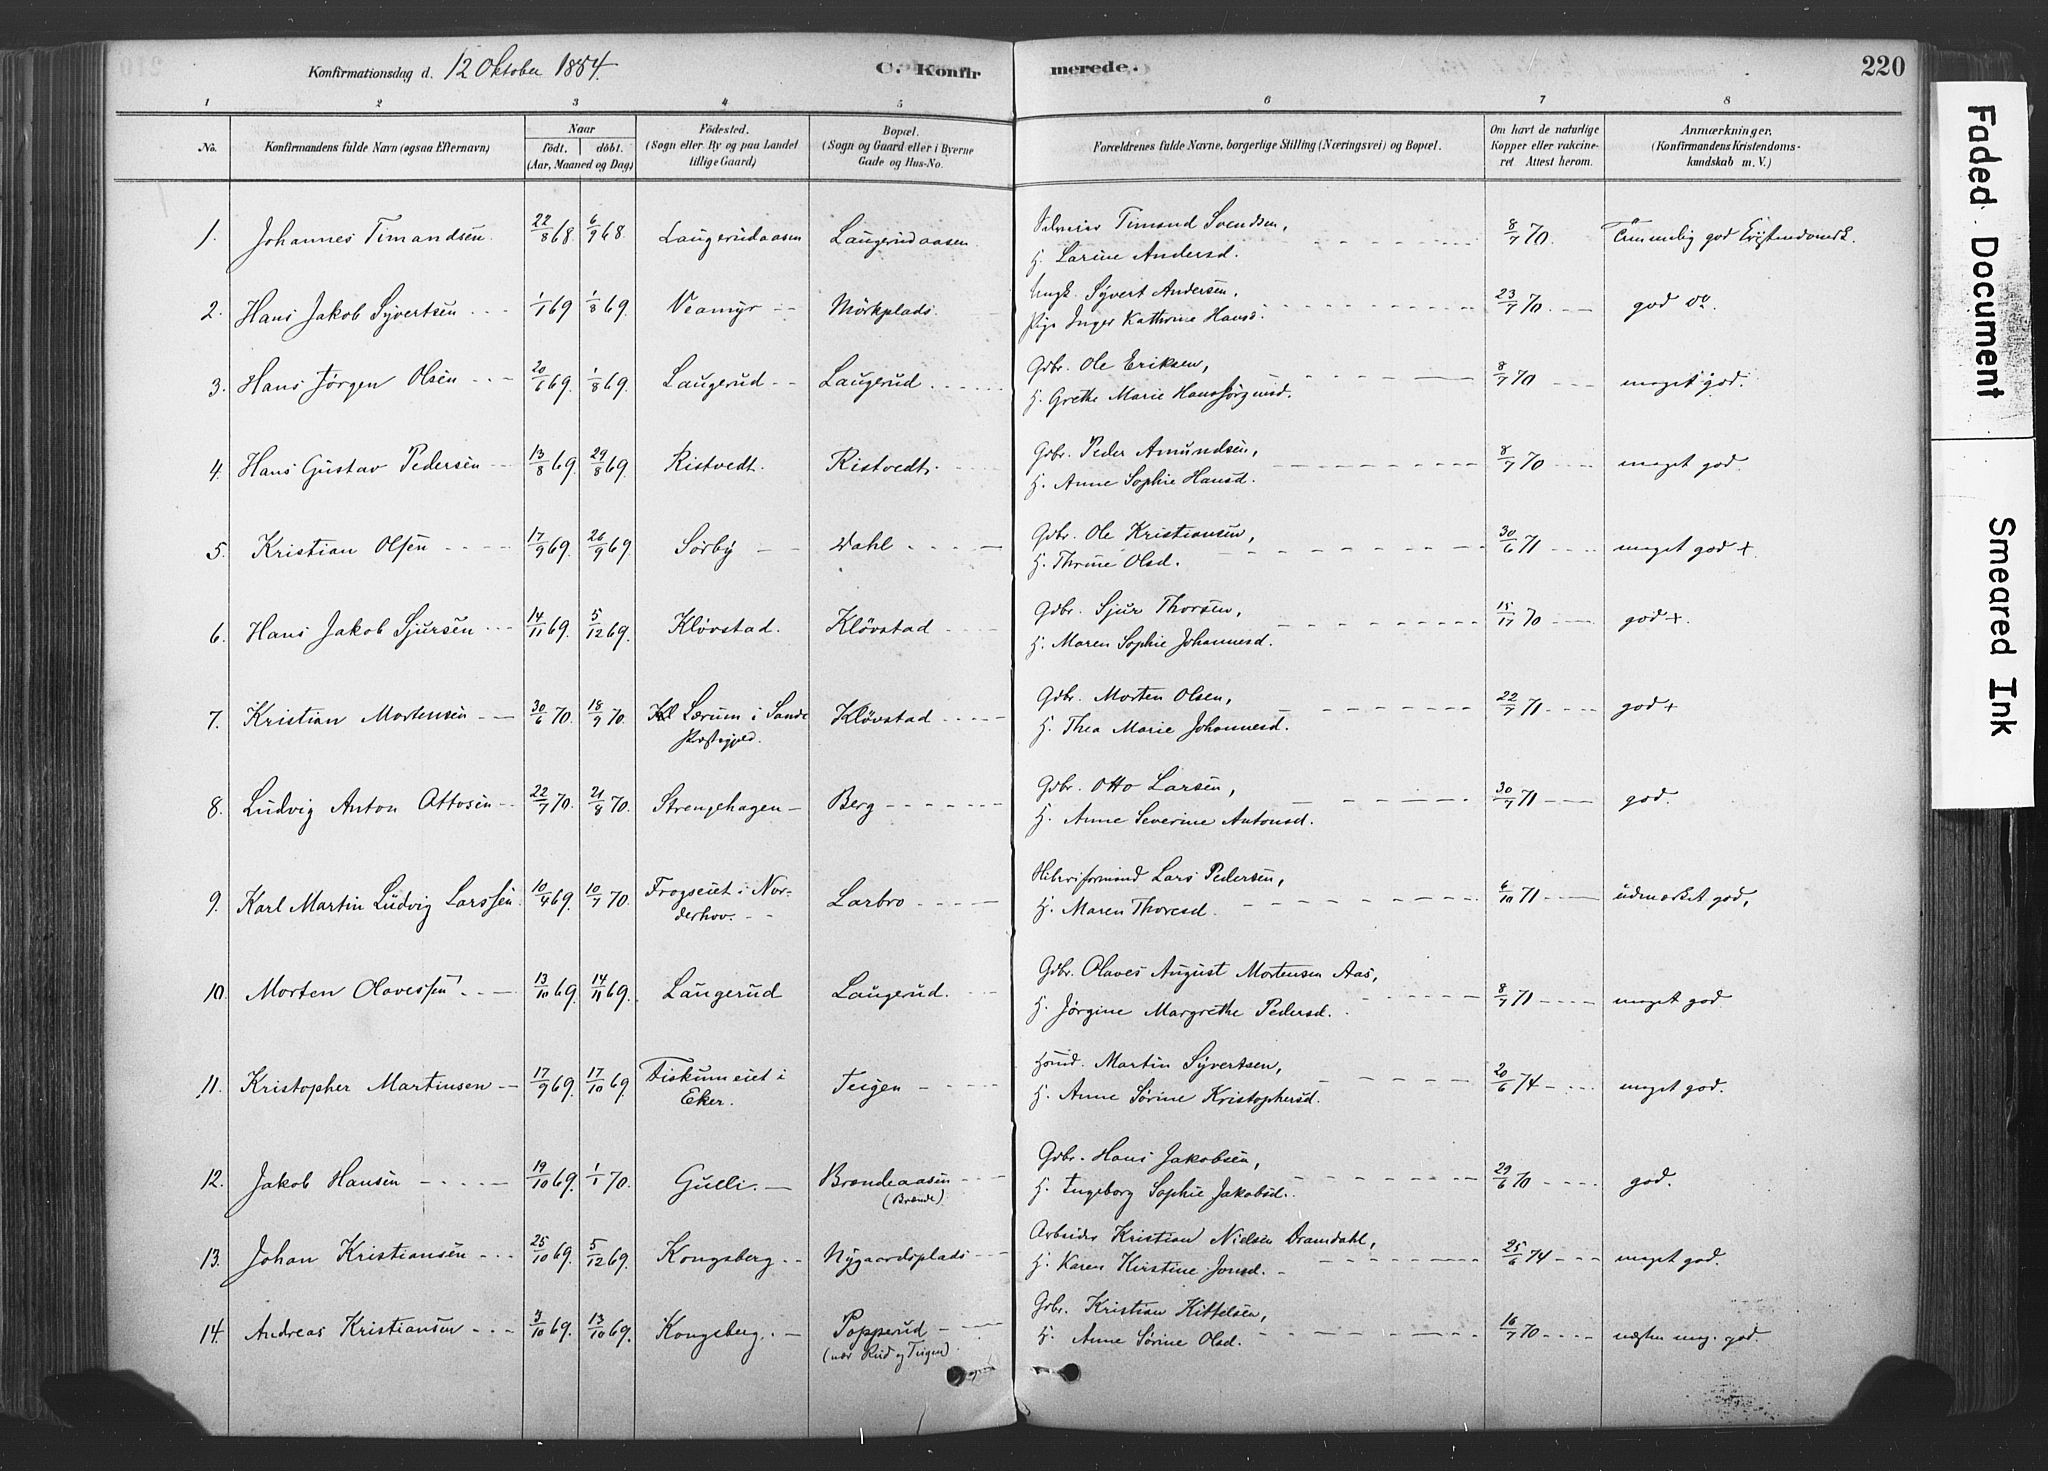 Konfirmationsdag d. 12 Oktober 1884. C. Konfirmerede. 220
1 2 3 4 5 6 7 8
No. Konfirmandens fulde Navn (ogsaa Efternavn) Naar födt. döbt. (Aar, Maaned og Dag) Födested. (Sogn eller By og paa Landet tillige Gaard) Bopæl. (Sogn og Gaard eller i Byerne Gade og Hus-No. Forældrenes fulde Navne, borgerlige Stilling (Næringsvei) og Bopæl. Om havt de naturlige Kopper eller vakcineret Attest herom. Anmærkninger. (Konfirmandens Kristendomskundskab m. V.)
1. Johannes Timandsen. 22/8 68. 6/9 68. Laugerudaasen Laugerudaasen Timand Svendsen,
H. Larine Andersd. 8/7 70. Temmelig god
2. Hans Jakob Syvertsen 1/1 69 1/8 69. Veamyr Mörkplads. Ungk. Syvert Andersen,
Pige Inger Kathrine Hansd. 23/7 70 god do.
3. Hans Jørgen Olsen 20/6 69. 1/8 69. Laugerud Laugerud Gdbr. Ole Eriksen,
H. Grethe Marie Hansjørgensd. 8/7 70 meget god.
4. Hans Gustav Pedersen 13/8 69. 29/8 69. Ristvedt. Ristvedt. Gdbr. Peder Amundsen,
H. Anne Sophie Hansd. 8/7 70 meget god.
5. Kristian Olsen 17/9 69. 26/9 69. Sörby Wahl Gdbr. Ole Kristiansen,
H. Thrine Olsd. 30/6 71 meget god +.
6. Hans Jakob Sjursen 14/11 69. 5/12 69. Klövstad. Klövstad Gdbr. Sjur Thorsen,
H. Maren Sophie Johannesd. 15/17 70 god +.
7. Kristian Mortensen 30/6 70. 18/9 70. Lærum i Sande
Præstegjeld. Klövstad Gdbr. Morten Olsen,
H. Thea Marie Johannesd. 22/7 71 god +
8. Ludvig Anton Ottosen 22/7 70. 21/8 70. Strengehagen Berg Gdbr. Otto Larsen,
H. Anne Severine Antonsd. 30/7 71 god.
9. Karl Martin Ludvig Larssen 10/4 69. 10/7 70. Frogseiet i Norderhov. Larbro Lars Pedersen,
H. Maren Thoresd. 6/10 71 udmærket god,
10. Morten Olavessen 13/10 69. 14/11 69. Laugerud Laugerud. Gdbr. Olaves August Mortensen Aas,
H. Jörgine Margrethe Pedersd. 8/7 71 meget god
11. Kristopher Martinsen 17/9 69. 17/10 69. Fiskumeiet i
Eker. Teigen Hsmd. Martin Syvertsen,
H. Anne Sörine Kristophersd. 20/6 74 meget god.
12. Jakob Hansen 19/10 69. 1/1 70. Gulli. Brændeaasen
(Brænde). Gdbr. Hans Jakobsen,
H. Ingeborg Sophie Jakobsd. 29/6 70 god.
13. Johan Kristiansen 25/10 69. 5/12 69. Kongsberg Nygaardsplads Arbeider Kristian Nielsen Dramdahl,
H. Karen Kirstine Jonsd. 25/6 74 meget god.
14. Andreas Kristiansen 3/10 69. 13/10 69. Kongsberg. Popperud
(nær Rud og Teigen). Gdbr. Kristian Kittelsen,
H. Anne Sörine Olsd. 16/7 70 næsten meg. god.
Faded Document
Smeared Ink